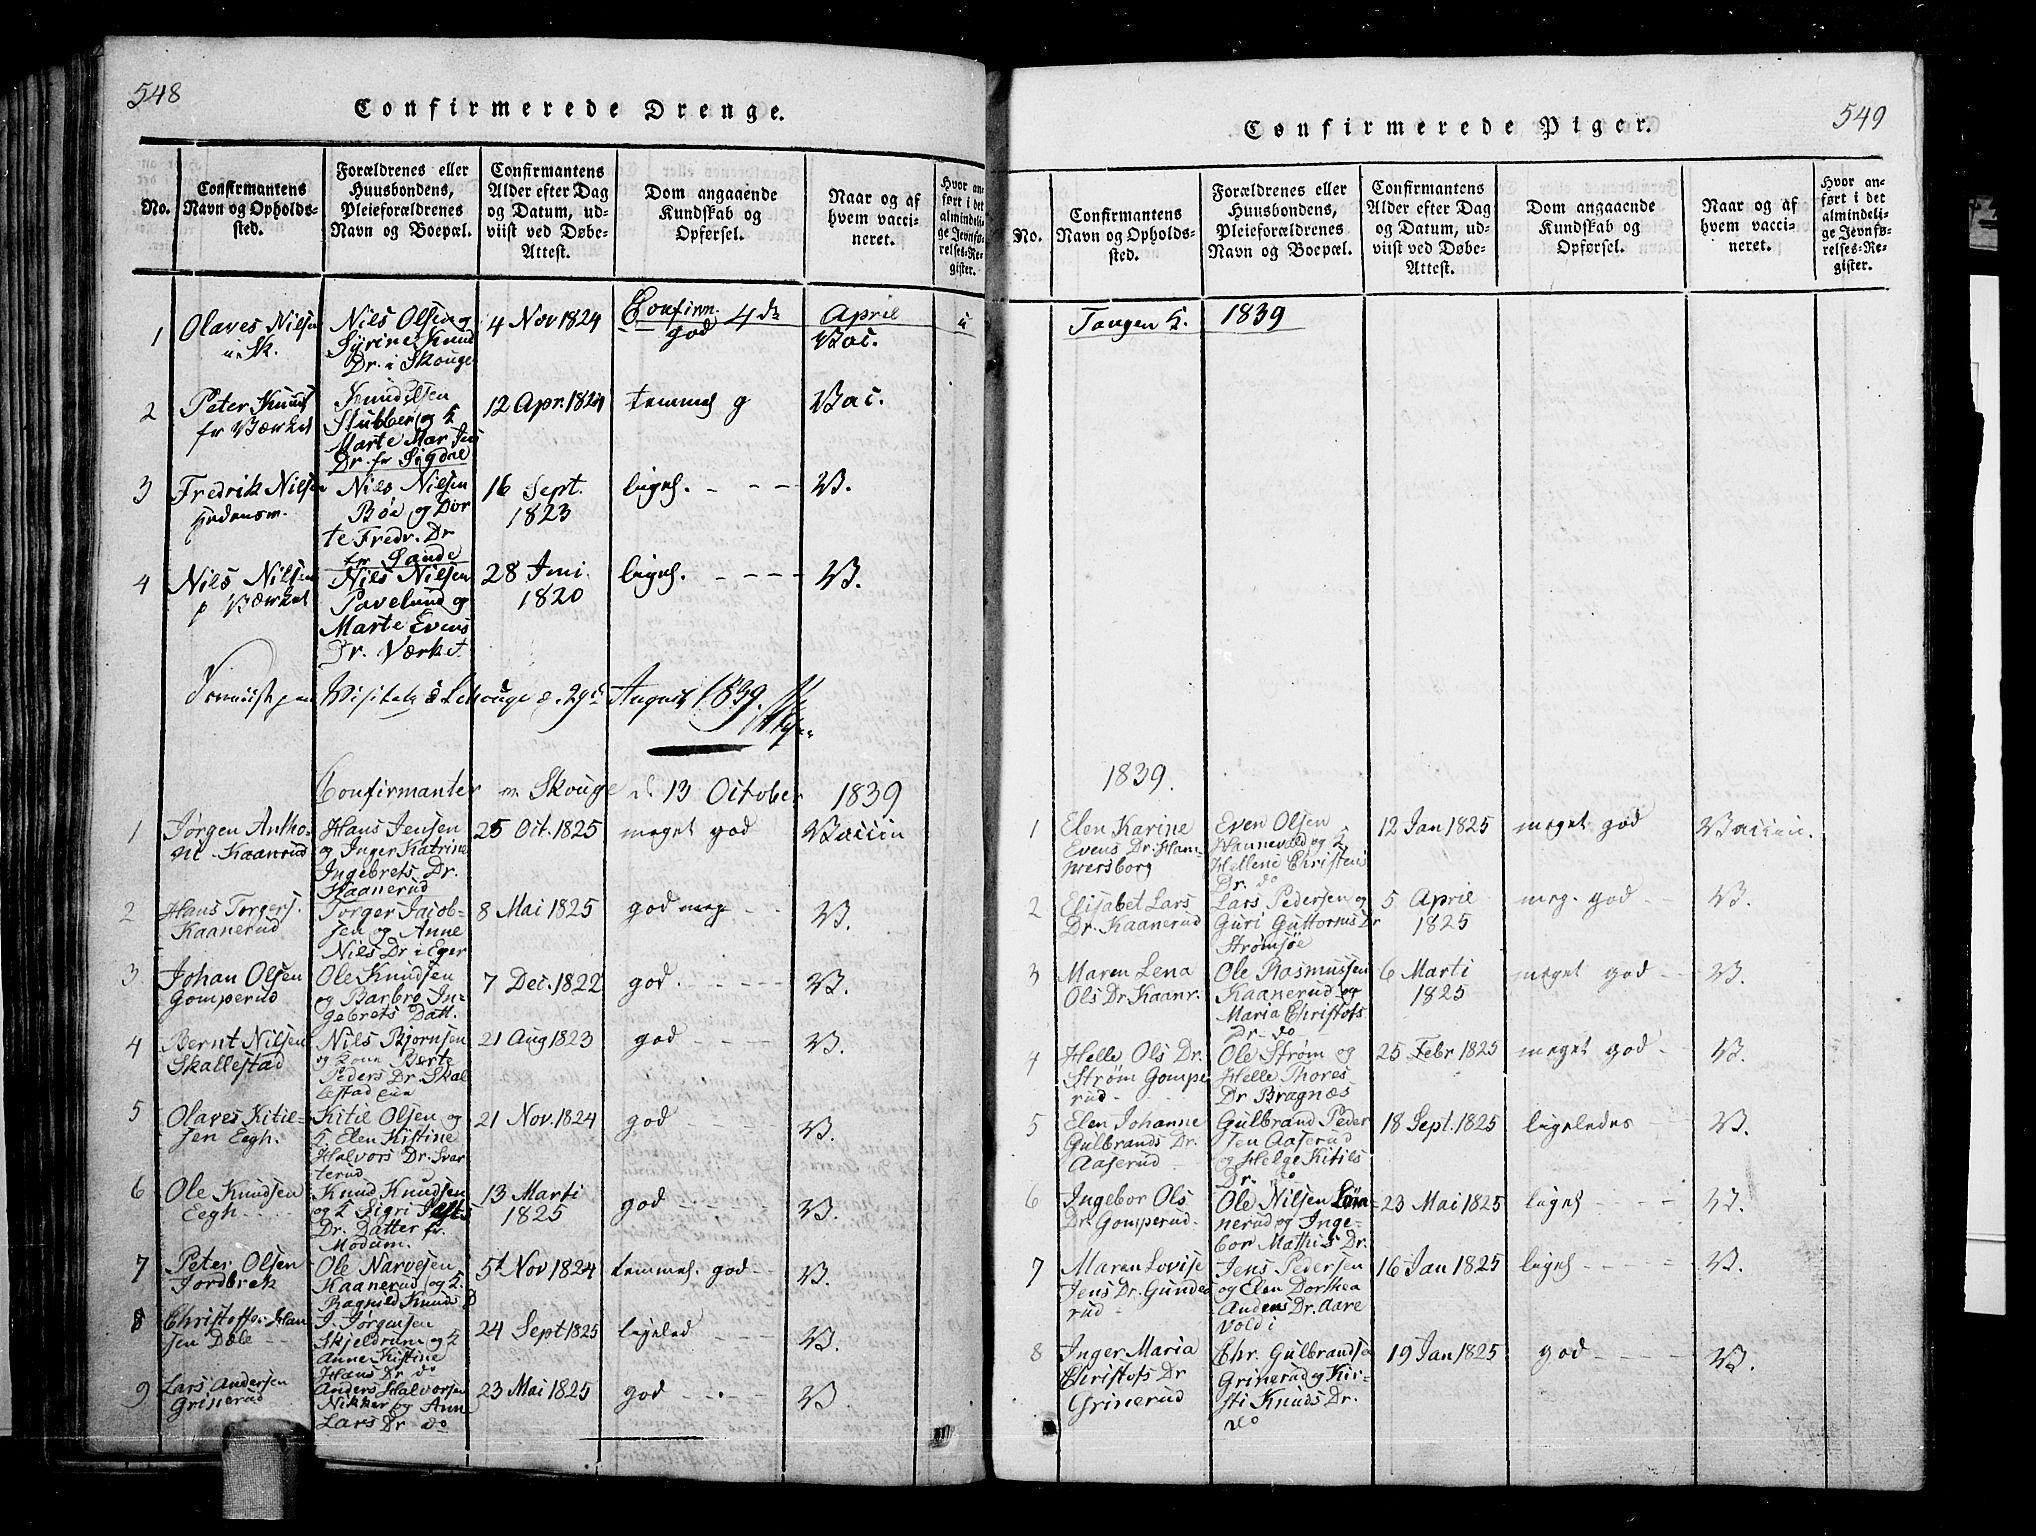 548
Confirmerede Drenge.
No.
Confirmantens
Navn og Opholds-
sted.
Forældrenes eller
Huusbondens,
Pleieforældrenes
Navn og Boepæl.
Confirmantens
Alder efter Dag
og Datum, ud-
viist ved Døbe-
Attest.
Dom angaaende
Kundskab og
Opførsel.
Naar og af
hvem vacci-
neret.
Hvor an-
ført i det
almindeli-
ge Jevnfø-
relses-Re-
gister.
Confirm. 4 d. April
1
Olaves Nilsen
Nils Olsen og
Syrine Knud
Dr. i Skouge
4 Nov 1824
god
Vac.
2
Peter Knuds
fr Værket
Knud Olsen
Stubber og
Marte Mar Jens
Dr. fr Sigdal
12 Apr. 1824
temmel g
Vac.
3
Fredrik Nilsen
Nils Nilsen
Böe og Dor
te Fredr. Dr
fr Sande
16 Sept.
1823
ligel.
V.
4
Nils Nilsen
p Værket
Nils Nilsen
Pavelund og
Marte Evens
Dr. Værket
28 Juni
1820
ligel.
V.
Visitats Skouge d. 29de August 1839.
Confirmanter Skouge d. 13 October 1839
1
Jørgen Antho-
ni Kaanrud
Hans Jensen
og Inger Katrine
Ingebrets Dr.
Kaanerud
25 Oct. 1825
meget god
Vaccin
2
Hans Torgers.
Kaanerud
Torger Jacob-
sen og Anne
Nils Dr i Eger
8 Mai 1825
god meg
V.
3
Johan Olsen
Gomperud
Ole Knudsen
og Barbro In-
gebrets Datt.
7 Dec. 1822
god.
V.
4
Bernt Nilsen
Skallestad
Nils Bjørnsen
og Kone Berte
Peders Dr Skal
lestad eie
21 Aug 1823
god
V.
5
Olaves Kitil-
sen Eegh.
Kitil Olsen og
Elen Kistine
Halvors Dr. Svar
terud
21 Nov. 1824
god
V.
6
Ole Knudsen
Eegh.
Knud Knudsen
og Sigri
Dr. Datter fr.
Modum.
13 Marti
1825
god
V.
7
Peter Olsen
Jordbrek
Ole Narvesen
Kaanerud og
Ragnild Knud D
5t Nov 1824
temmel. god
V.
8
Christoffer Han
sen Dæle
J. Jørgensen
Skjeldrum og
Anne Kistine
Hans Dr do
24 Sept 1825
ligeled
V.
9
Lars Andersen
Grinerud
Anders Halvorsen
Nikker og Ann
Lars Dr do
23 Mai 1825
god
V.
549
Confirmerede Piger.
No.
Confirmantens
Navn og Opholds-
sted.
Forældrenes eller
Huusbondens,
Pleieforældrenes
Navn og Boepæl.
Confirmantens
Alder efter Dag
og Datum, ud-
viist ved Døbe-
Attest.
Dom angaaende
Kundskab og
Opførsel.
Naar og af
hvem vacci-
neret.
Hvor an-
ført i det
almindeli-
ge Jevnfø-
relses-Re-
gister.
Tangen K. 1839
1839.
1
Elen Karine
Evens Dr. Ham-
mersborg
Even Olsen
Hanneveld og
Hellene Christens
Dr. do
12 Jan 1825
meget god
Vaccin.
2
Elisabet Lars
Dr. Kaanerud
Lars Pedersen og
Guri Guttorms Dr
Strømsöe
5 April
1825
meg. god
V.
3
Maren Lena
Ols Dr Kaanr.
Ole Rasmussen
Kaanerud og
Maria Christofs
Dr do
6 Marti
1825
meget god
V.
4
Helle Ols Dr.
Strøm Gompe
rud
Ole Strøm og
Helle Thores
Dr Bragnæs
25 Febr 1825
meget god
V.
5
Elen Johanne
Gulbrands Dr.
Aaserud
Gulbrand Peder
sen Aaserud
og Helge Kitils
Dr. do
18 Sept. 1825
ligeledes
V.
6
Ingebor Ols
Dr. Gomperud
Ole Nilsen Løm
nerud og Inge-
bor Mathis Dr.
23 Mai 1825
ligel
V.
7
Maren Lovise
Jens Dr. Gunde
rud
Jens Pedersen
og Elen Dorthea
Anders Dr. Aare
vold i
16 Jan 1825
ligel
V.
8
Inger Maria
Christofs Dr
Grinerud
Chr. Gulbrandsen
Grinerud og Kir-
sti Knuds Dr.
do
19 Jan 1825
god
V.